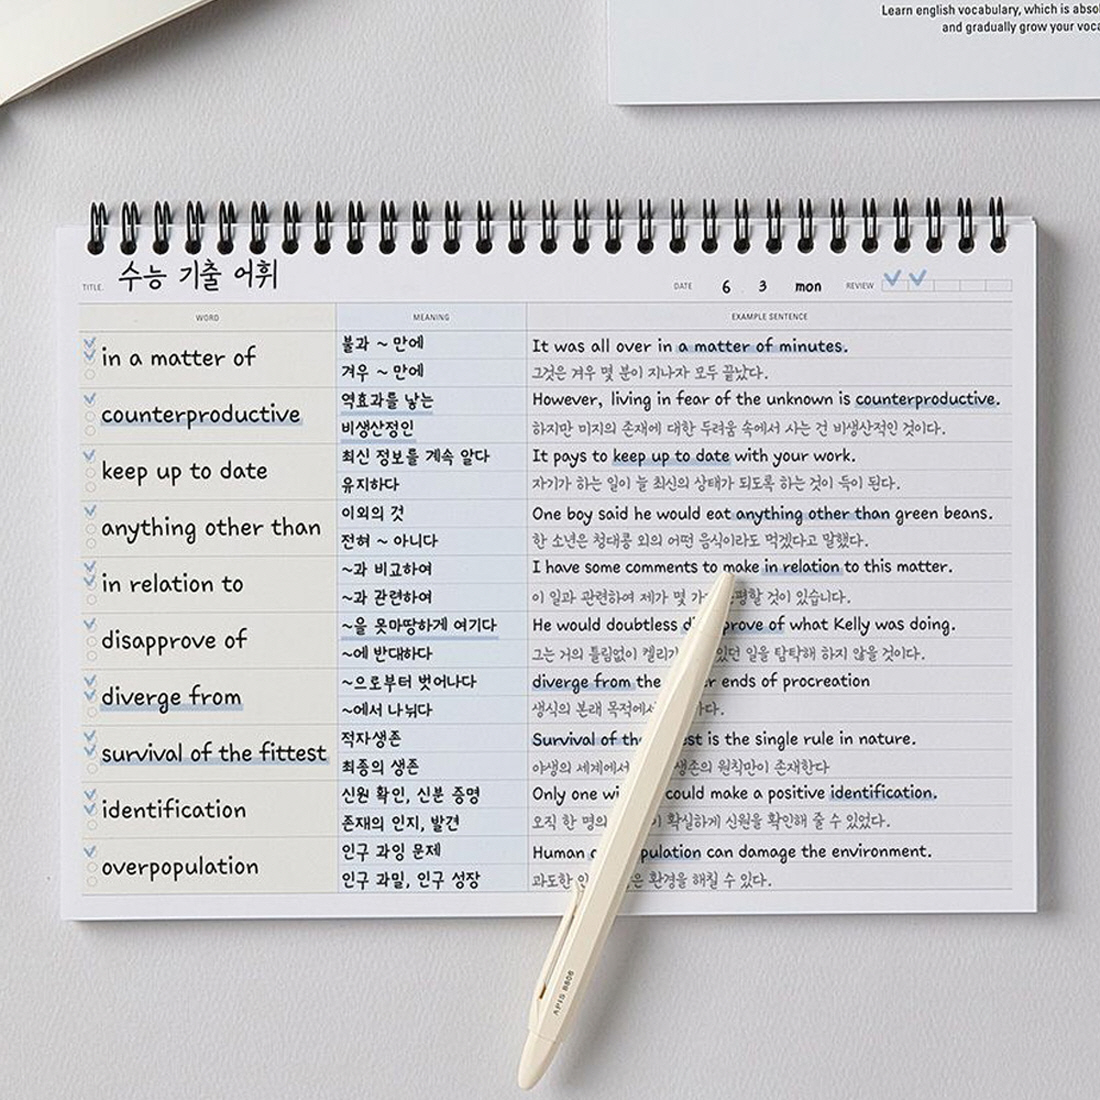 Learn english vocabulary, which is
and gradually grow your
TITLE. 수능 기출 어휘 DATE 6 . 3 mon REVIEW
WORD MEANING EXAMPLE SENTENCE
in a matter of
불과 ~ 만에
겨우 ~ 만에
It was all over in a matter of minutes.
그것은 겨우 몇 분이 지나자 모두 끝났다.
counterproductive
역효과를 낳는
비생산정인
However, living in fear of the unknown is counterproductive.
하지만 미지의 존재에 대한 두려움 속에서 사는 건 비생산적인 것이다.
keep up to date
최신 정보를 계속 알다
유지하다
It pays to keep up to date with your work.
자기가 하는 일이 늘 최신의 상태가 되도록 하는 것이 득이 된다.
anything other than
이외의 것
전혀 ~ 아니다
One boy said he would eat anything other than green beans.
한 소년은 청대콩 외의 어떤 음식이라도 먹겠다고 말했다.
in relation to
~과 비고하여
~과 관련하여
I have some comments to make in relation to this matter.
이 일과 관련하여 제가 몇 할 것이 있습니다.
disapprove of
~을 못마땅하게 여기다
~에 반대하다
He would doubtless of what Kelly was doing.
그는 거의 틀림없이 일을 탐탁해 하지 않을 것이다.
diverge from
~으로부터 벗어나다
~에서 나뉘다
diverge from the ends of procreation
생식의 본래
survival of the fittest
적자생존
최종의 생존
Survival of is the single rule in nature.
야생의 원칙만이 존재한다
identification
신원 확인, 신분 증명
존재의 인지, 발견
Only one could make a positive identification.
오직 한 확실하게 신원을 확인해 줄 수 있었다.
overpopulation
인구 과잉 문제
인구 과밀, 인구 성장
Human can damage the environment.
과도한 환경을 해칠 수 있다.
APIS B806